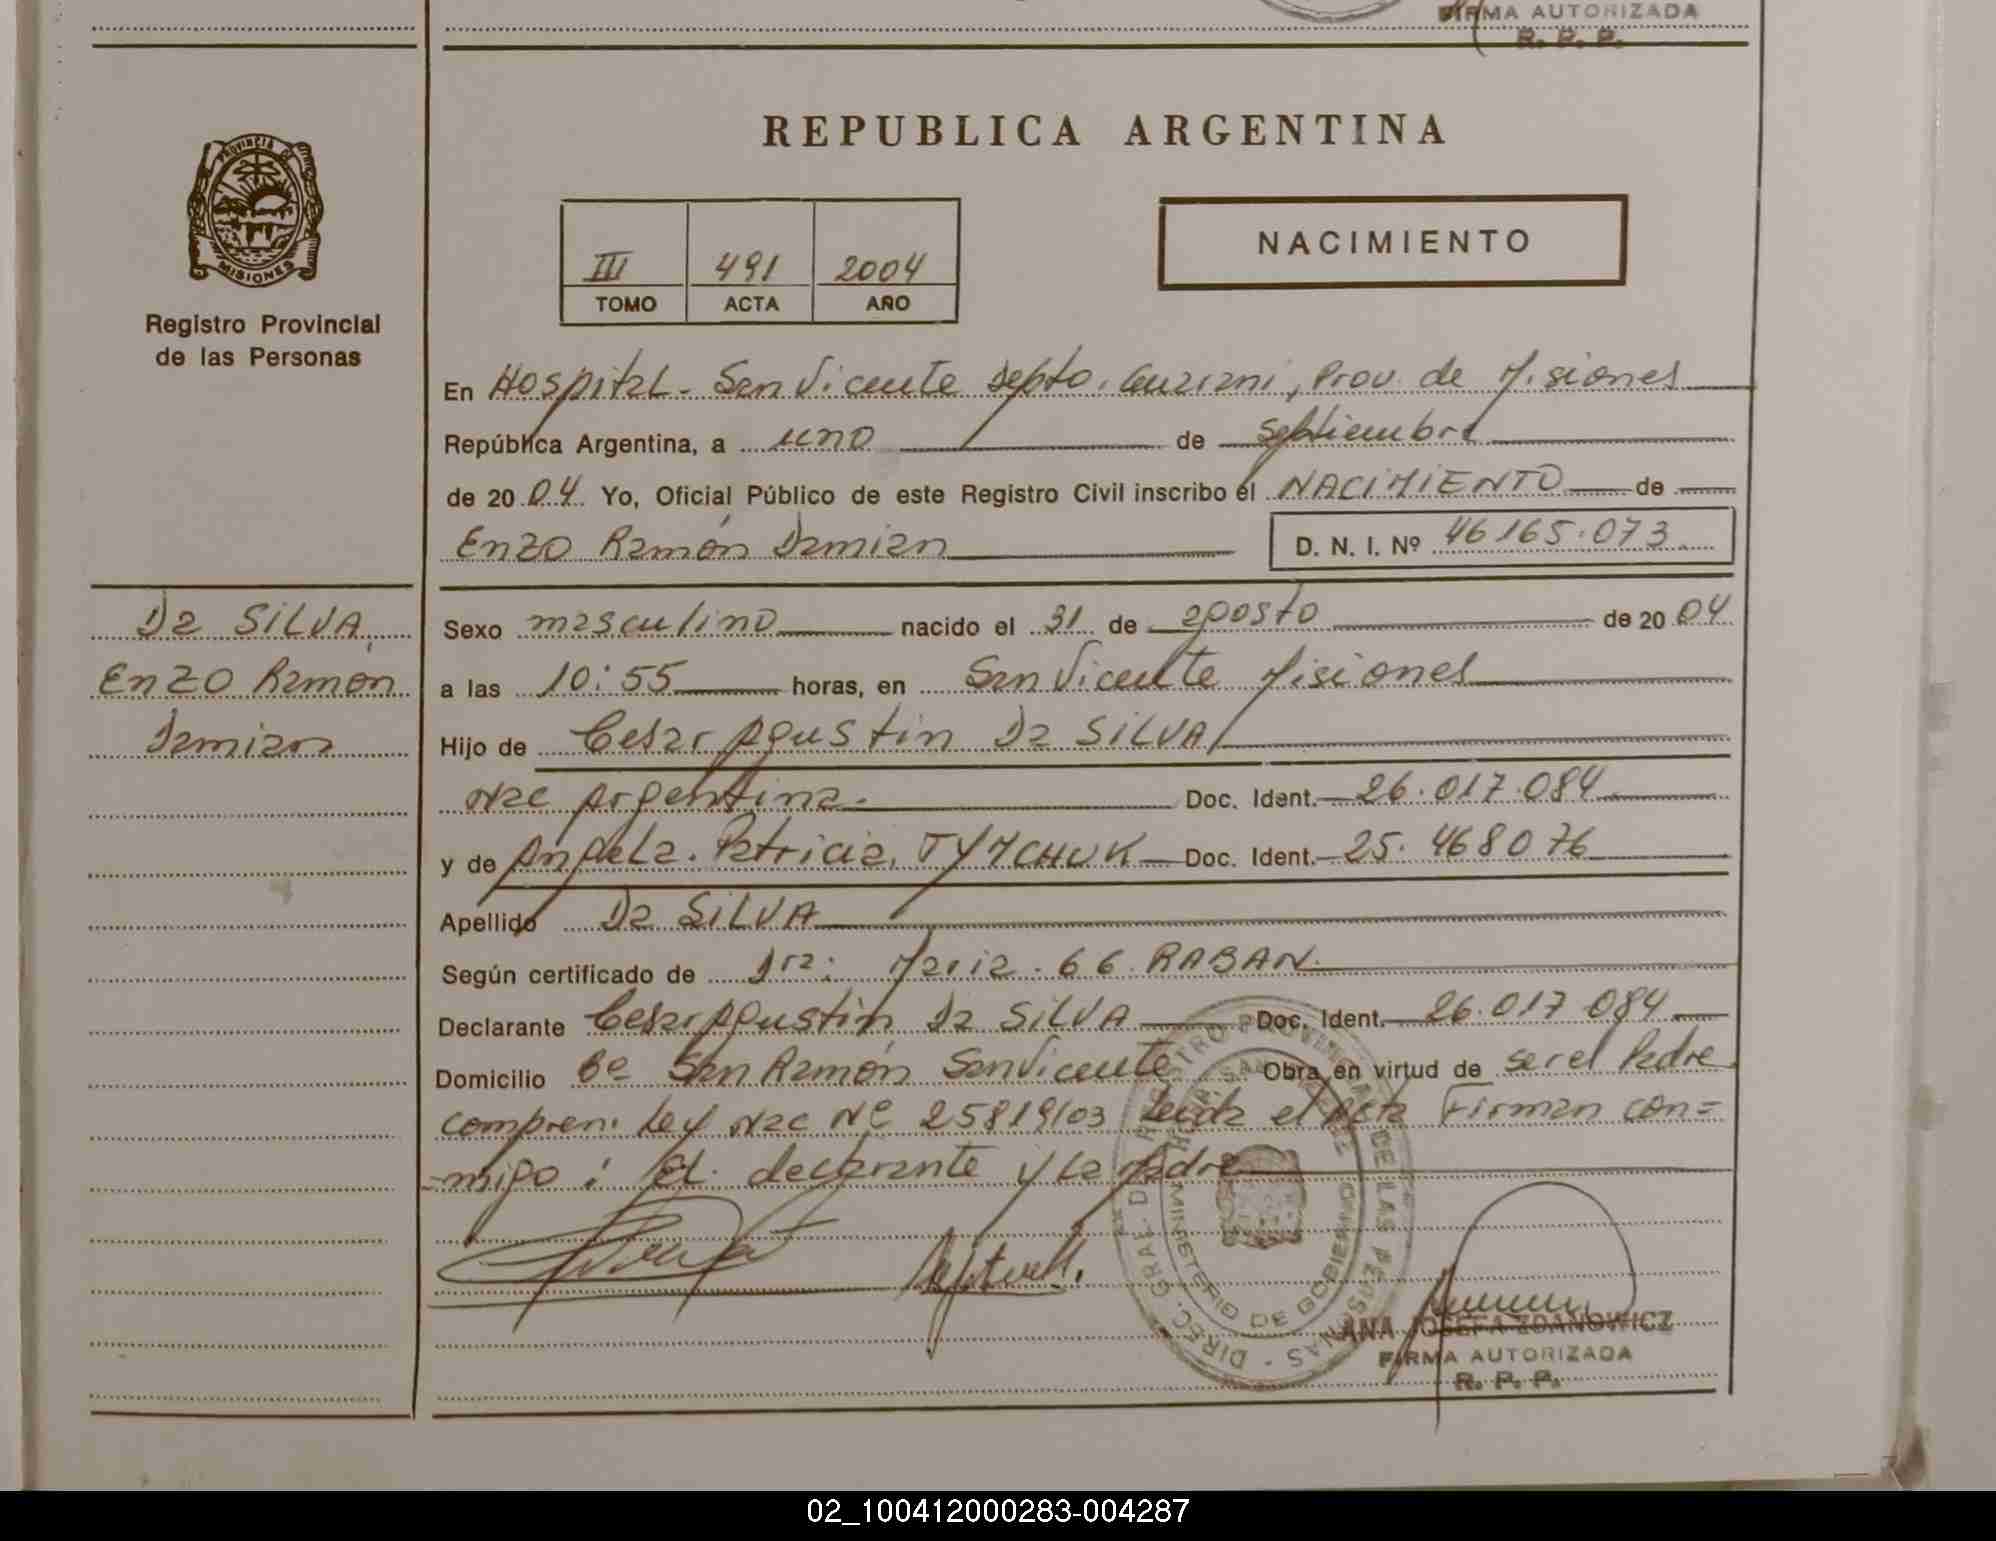 FIRMA AUTORIZADA
R. P. P.
PROVINCIA DE
MISIONES
Registro Provincial
de las Personas
REPUBLICA ARGENTINA
III 491 2004
TOMO ACTA AÑO
NACIMIENTO
En Hospital - San Vicente Depto. Guarani, Prov. de Misiones
República Argentina, a uno de Septiembre
de 20 04 Yo, Oficial Público de este Registro Civil inscribo el NACIMIENTO de
Enzo Ramón Damian D. N. I. Nº 46165.073
Da SILVA
Enzo Ramón
Damian
Sexo masculino nacido el 31 de agosto de 20 04
a las 10:55 horas, en San Vicente Misiones
Hijo de Cesar Agustin Da SILVA
Nac Argentina. Doc. Ident. 26.017.084
y de Angela. Patricia. TYMCHUK Doc. Ident. 25.468076
Apellido Da SILVA
Según certificado de Dra: Maria. RABAN.
Declarante Cesar Agustin Da SILVA Doc. Ident. 26.017 084
Domicilio Bº San Ramón San Vicente Obra en virtud de ser el Padre
compren. Ley Nac Nº 25819/03 Leida el Acta Firman con=
-migo: El declarante y La Madre
DIREC. GRAL. DEL REGISTRO PROVINCIAL DE LAS PERSONAS
MINISTERIO DE GOBIERNO
ANA JOSEFA ZDANOWICZ
FIRMA AUTORIZADA
R. P. P.
02_100412000283-004287